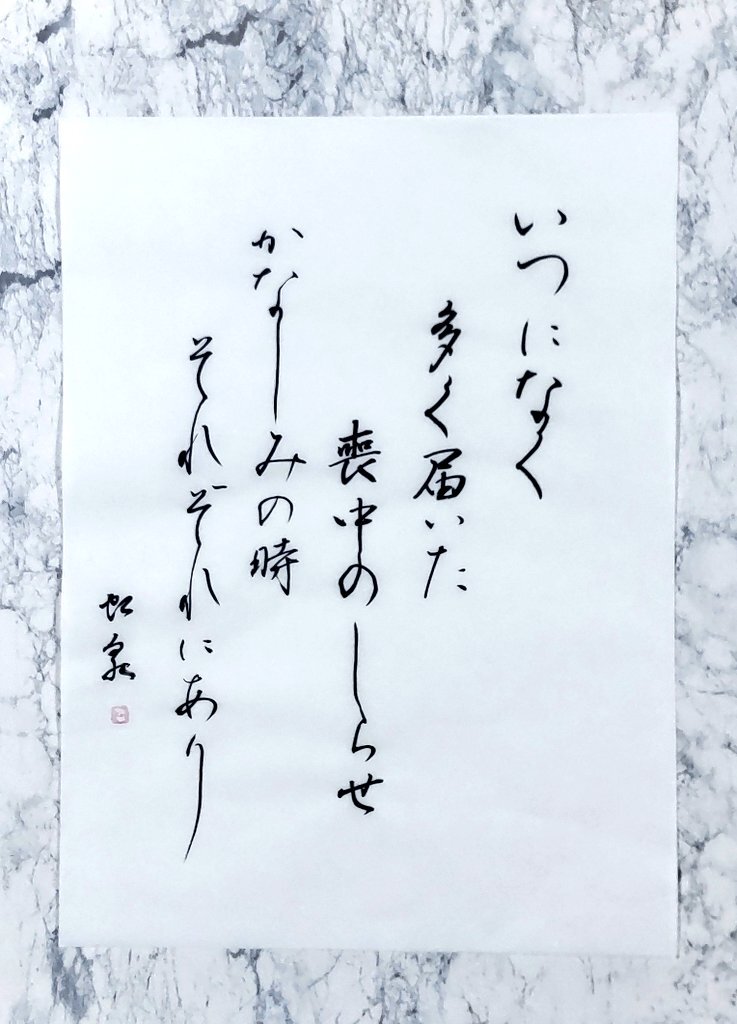 いつになく
多く届いた
喪中のしらせ
かなしみの時
それぞれにあり
虹泉